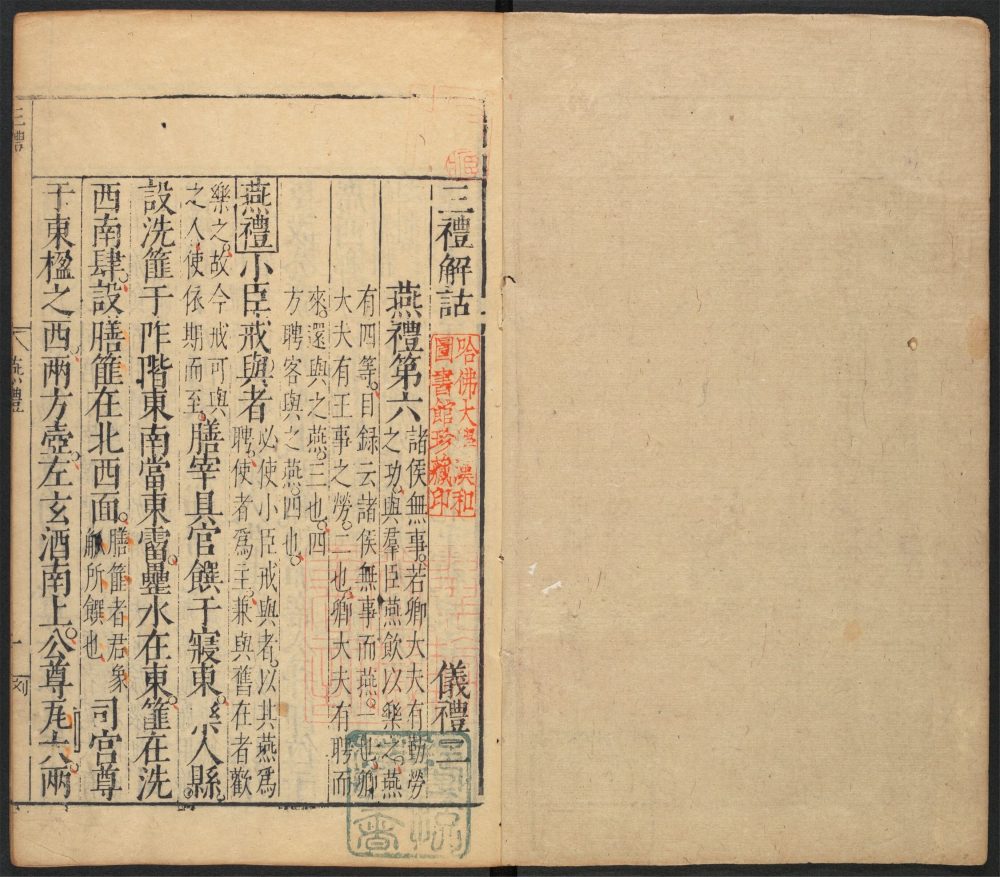 三禮解詁
儀禮三
哈佛大學漢和
圖書館珍藏印
燕禮第六
諸侯無事。若卿大夫有勤勞
之功。與羣臣燕飲以樂之。燕
有四等。目録云諸侯無事而燕。一也。卿
大夫有王事之勞。二也。卿大夫有聘而
來。還與之燕。三也。四
方聘客與之燕。四也。
燕禮小臣戒與者
必使小臣戒與者。以其燕爲
聘使者爲主。兼與舊在者歡
樂之。故今戒可與
之人使依期而至。
膳宰具官饌于寢東。樂人縣。
設洗篚于阼階東南當東霤。罍水在東。篚在洗
西南肆。設膳篚在北西面。
膳篚者君象
觚所饌也
司宮尊
于東楹之西。兩方壺。左玄酒南上。公尊瓦大兩
三禮
燕禮
一